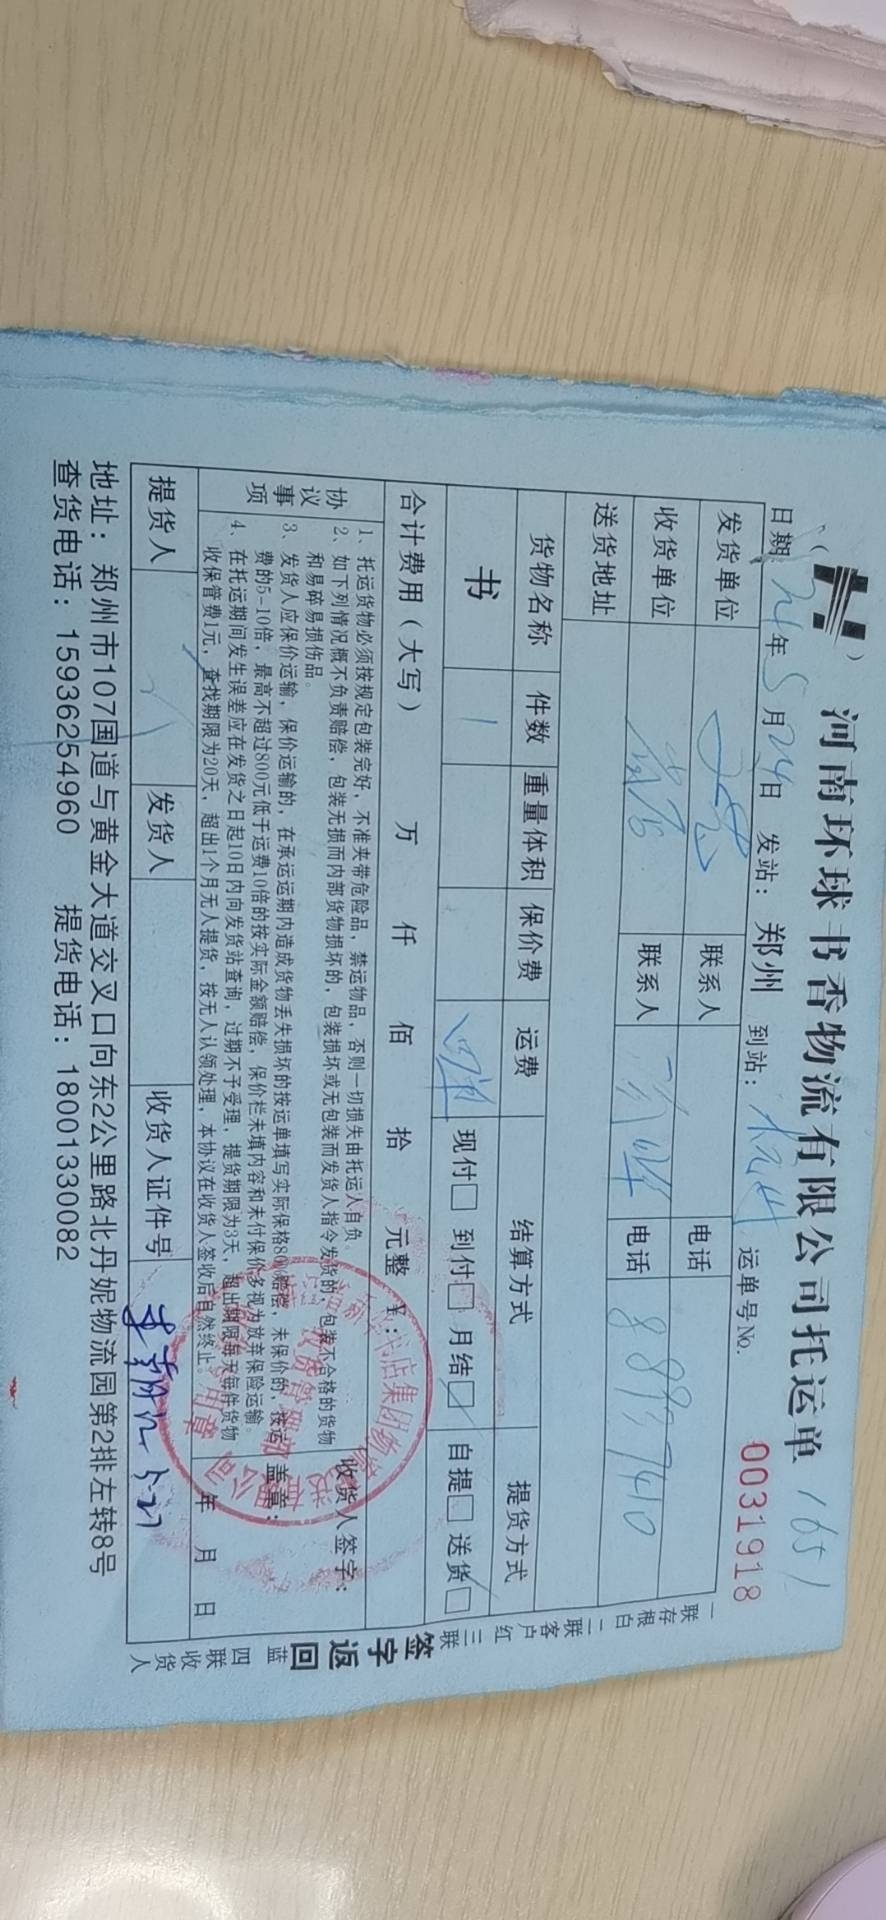 河南环球书香物流有限公司托运单 1651
日期: 24年5月24日 发站: 郑州 到站: 杭州 运单号No. 0031918
发货单位 联系人 电话
收货单位 联系人 电话 88937410
送货地址
货物名称 件数 重量体积 保价费 运费 结算方式 提货方式
书 1 现付□ 到付□ 月结☑ 自提□ 送货☑
合计费用(大写) 万 仟 佰 拾 元整 ¥:
协议事项
1、托运货物必须按规定包装完好，不准夹带危险品，禁运物品，否则一切损失由托运人自负。
2、如下列情况概不负责赔偿，包装无损而内部货物损坏的，包装损坏或无包装而发货人指令发货的，包装不合格的货物
和易碎易损伤品。
3、发货人应保价运输，保价运输的，在承运运期内造成货物丢失损坏的按运单填写实际保格80%赔偿，未保价的，按运
费的5-10倍，最高不超过800元低于运费10倍的按实际金额赔偿，保价栏未填内容和未付保价多视为放弃保险运输。
4、在托运期间发生误差应在发货之日起10日内向发货站查询，过期不予受理，提货期限为3天，超出期限每天每件货物
收保管费1元，查找期限为20天，超出1个月无人提货，按无人认领处理，本协议在收货人签收后自然终止。
收货人签字:
盖章:
年 月 日
提货人 发货人 收货人证件号 5.27
地址: 郑州市107国道与黄金大道交叉口向东2公里路北丹妮物流园第2排左转8号
查货电话: 15936254960 提货电话: 18001330082
一联存根白 二联客户红 三联签字返回蓝 四联收货人